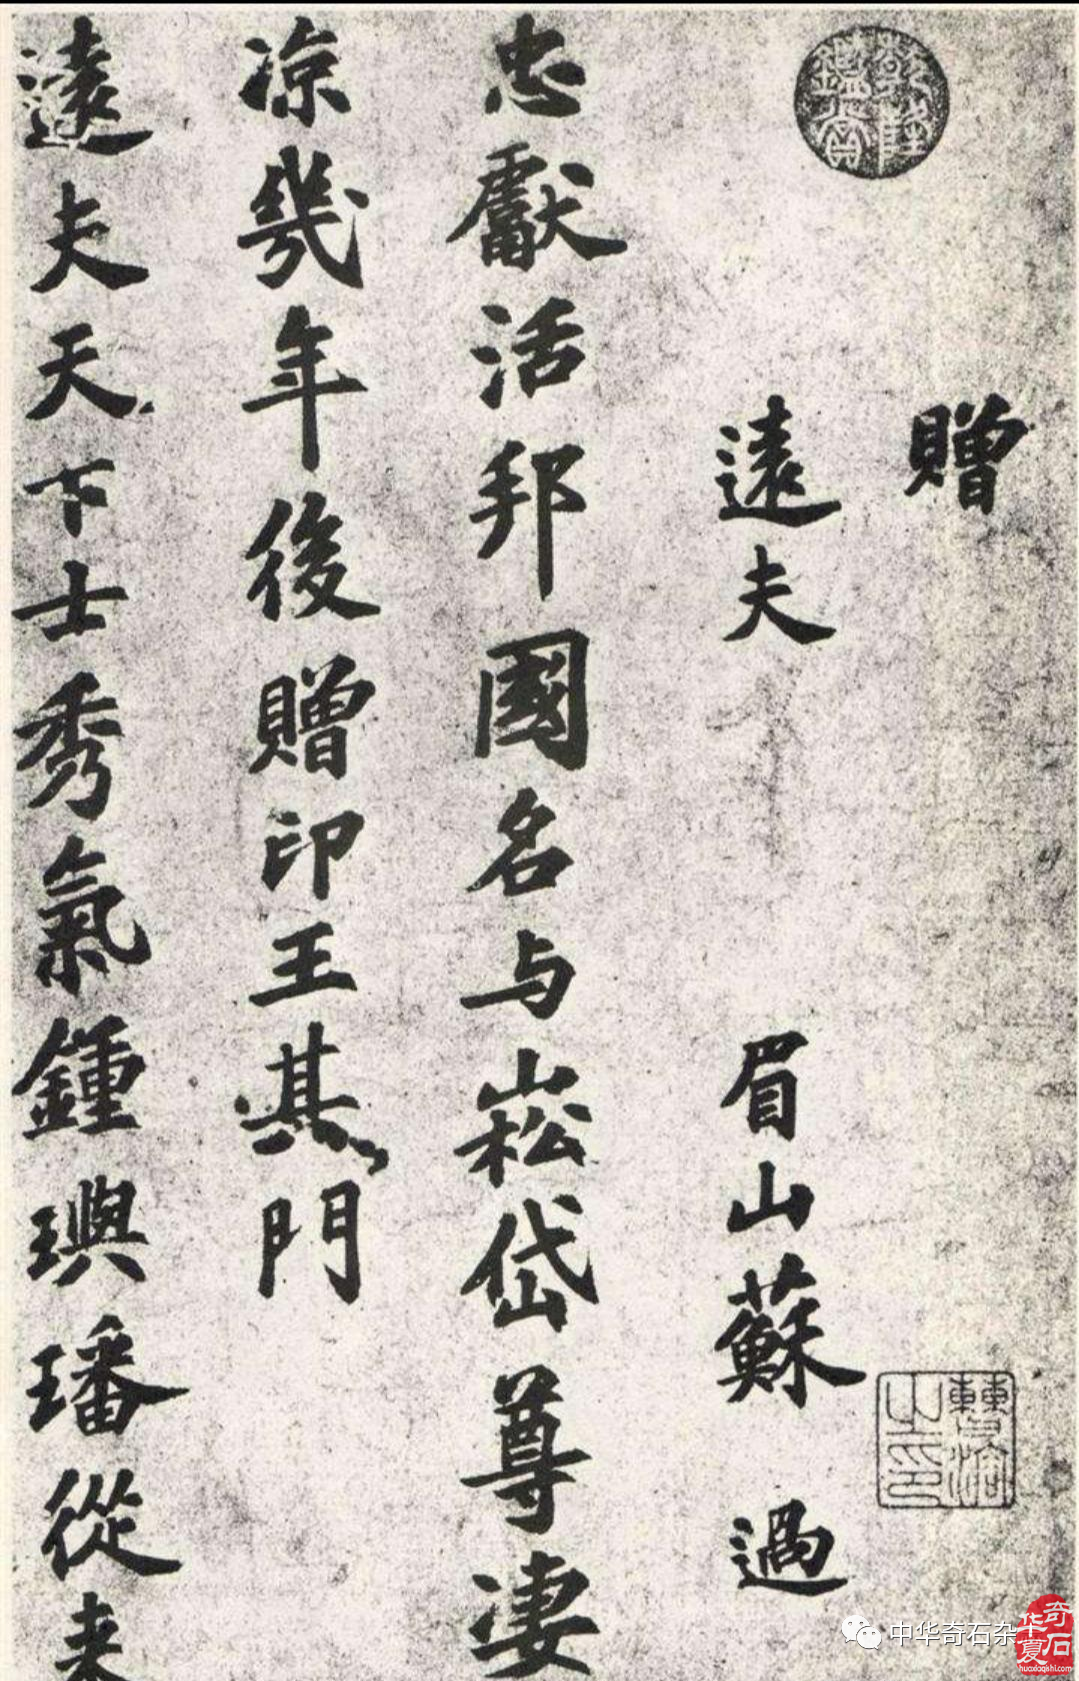 贈
遠夫
眉山蘇 過
忠獻活邦國名与崧岱尊淒
凉幾年後贈印王其門
遠夫天下士秀氣鍾璵璠從來
乾隆
鑑賞
之印
中华奇石杂
华夏奇石
huaxiaqishi.com